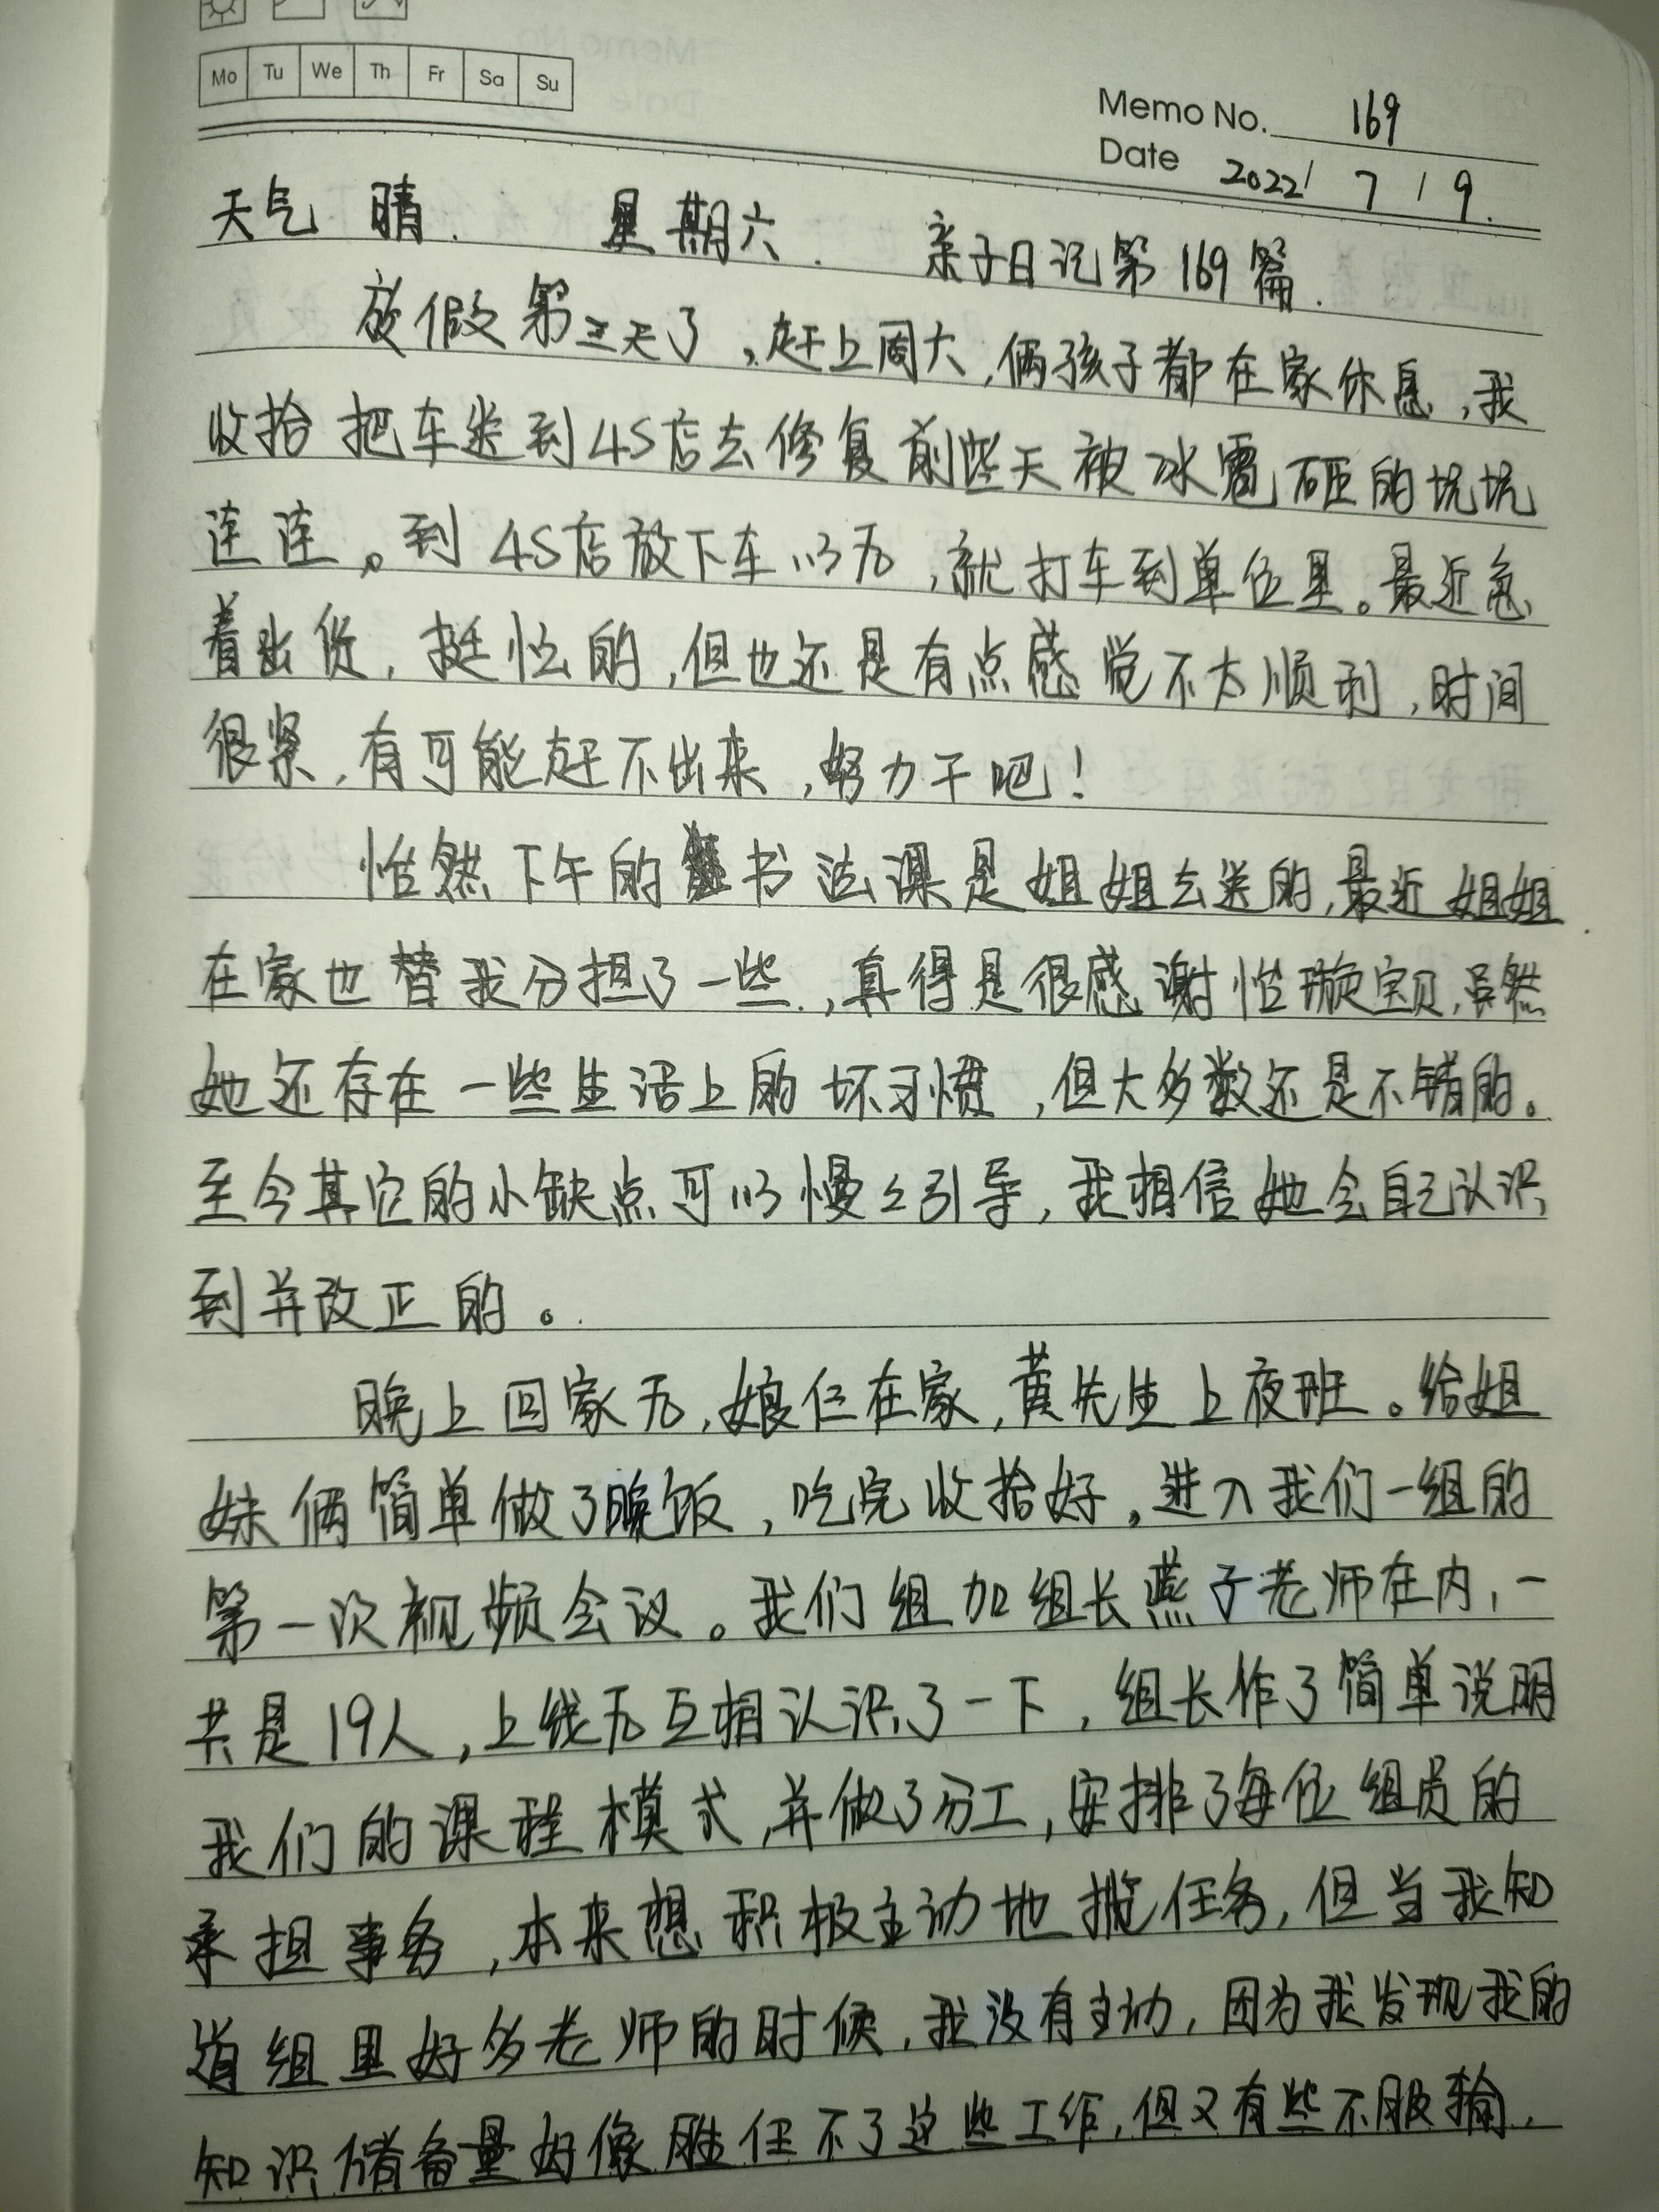 Mo Tu We Th Fr Sa Su
Memo No. 169
Date 2022/ 7 / 9.
天气 晴. 星期六. 亲子日记第169篇.
放假第三天了,赶上周六,俩孩子都在家休息,我
收拾把车送到4S店去修复前些天被冰雹砸的坑坑
连连。到4S店放下车以后,就打车到单位里。最近急
着出货,挺忙的,但也还是有点感觉不太顺利,时间
很紧,有可能赶不出来,努力干吧!
怡然下午的书法课是姐姐去送的,最近姐姐
在家也替我分担了一些,真得是很感谢怡璇宝贝,虽然
她还存在一些生活上的坏习惯,但大多数还是不错的。
至今其它的小缺点可以慢々引导,我相信她会自己认识
到并改正的。
晚上回家后,娘仨在家,黄先生上夜班。给姐
妹俩简单做了晚饭,吃完收拾好,进入我们一组的
第一次视频会议。我们组加组长燕子老师在内,一
共是19人,上线后互相认识了一下,组长作了简单说明
我们的课程模式,并做了分工,安排了每位组员的
承担事务,本来想积极主动地揽任务,但当我知
道组里好多老师的时候,我没有主动,因为我发现我的
知识储备量好像胜任不了这些工作,但又有些不服输,